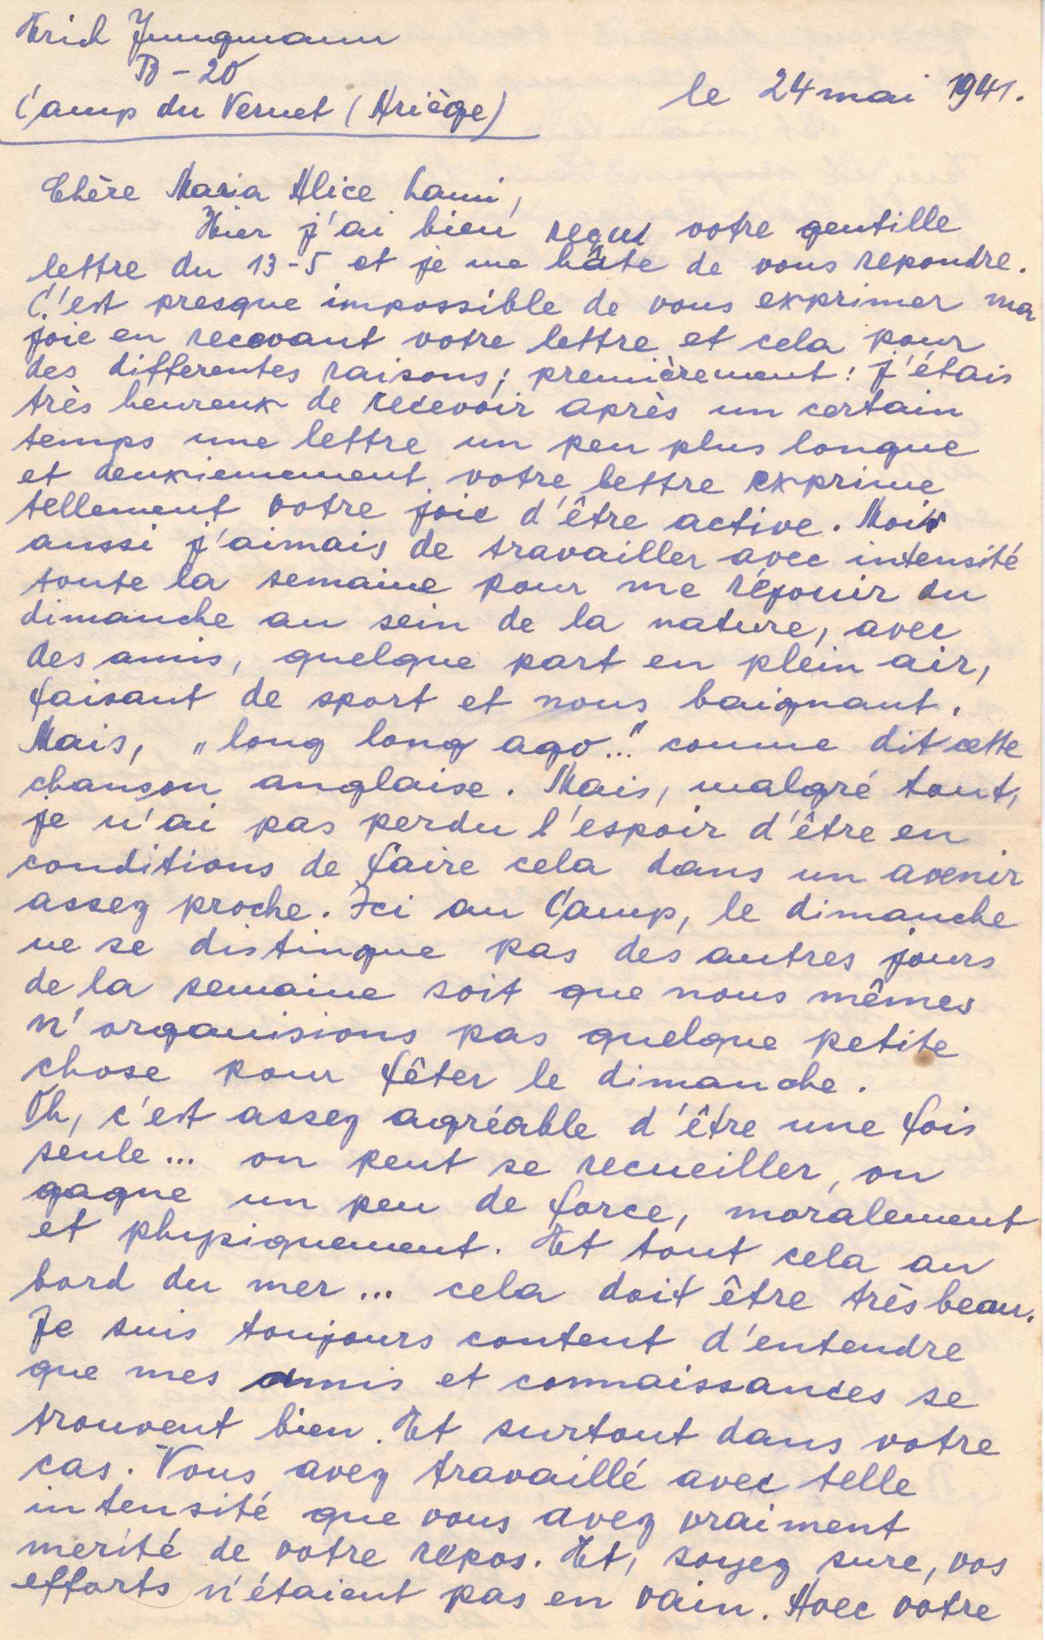 Erich Jungmann
B-20
Camp du Vernet (Ariège)
le 24 mai 1941.
Chère Maria Alice Lami,
Hier j'ai bien reçus votre gentille
lettre du 13-5 et je me hâte de vous repondre.
C'est presque impossible de vous exprimer ma
joie en recevant votre lettre et cela pour
des differentes raisons; premièrement: j'étais
très heureux de recevoir après un certain
temps une lettre un peu plus longue
et deuxiemement votre lettre exprime
tellement votre joie d'être active. Moi
aussi j'aimais de travailler avec intensité
toute la semaine pour me réjouir du
dimanche au sein de la nature, avec
des amis, quelque part en plein air,
faisant de sport et nous baignant.
Mais, „long long ago..." comme dit cette
chanson anglaise. Mais, malgré tout,
je n'ai pas perdu l'espoir d'être en
conditions de faire cela dans un avenir
assez proche. Ici au Camp, le dimanche
ne se distingue pas des autres jours
de la semaine soit que nous mêmes
n'organisions pas quelque petite
chose pour fêter le dimanche.
Oh, c'est assez agréable d'être une fois
seule... on peut se recueiller, on
gagne un peu de force, moralement
et phypiquement. Et tout cela au
bord du mer... cela doit être très beau.
Je suis toujours content d'entendre
que mes amis et connaissances se
trouvent bien. Et surtout dans votre
cas. Vous avez travaillé avec telle
intensité que vous avez vraiment
merité de votre repos. Et, soyez sure, vos
efforts n'étaient pas en vain. Avec votre